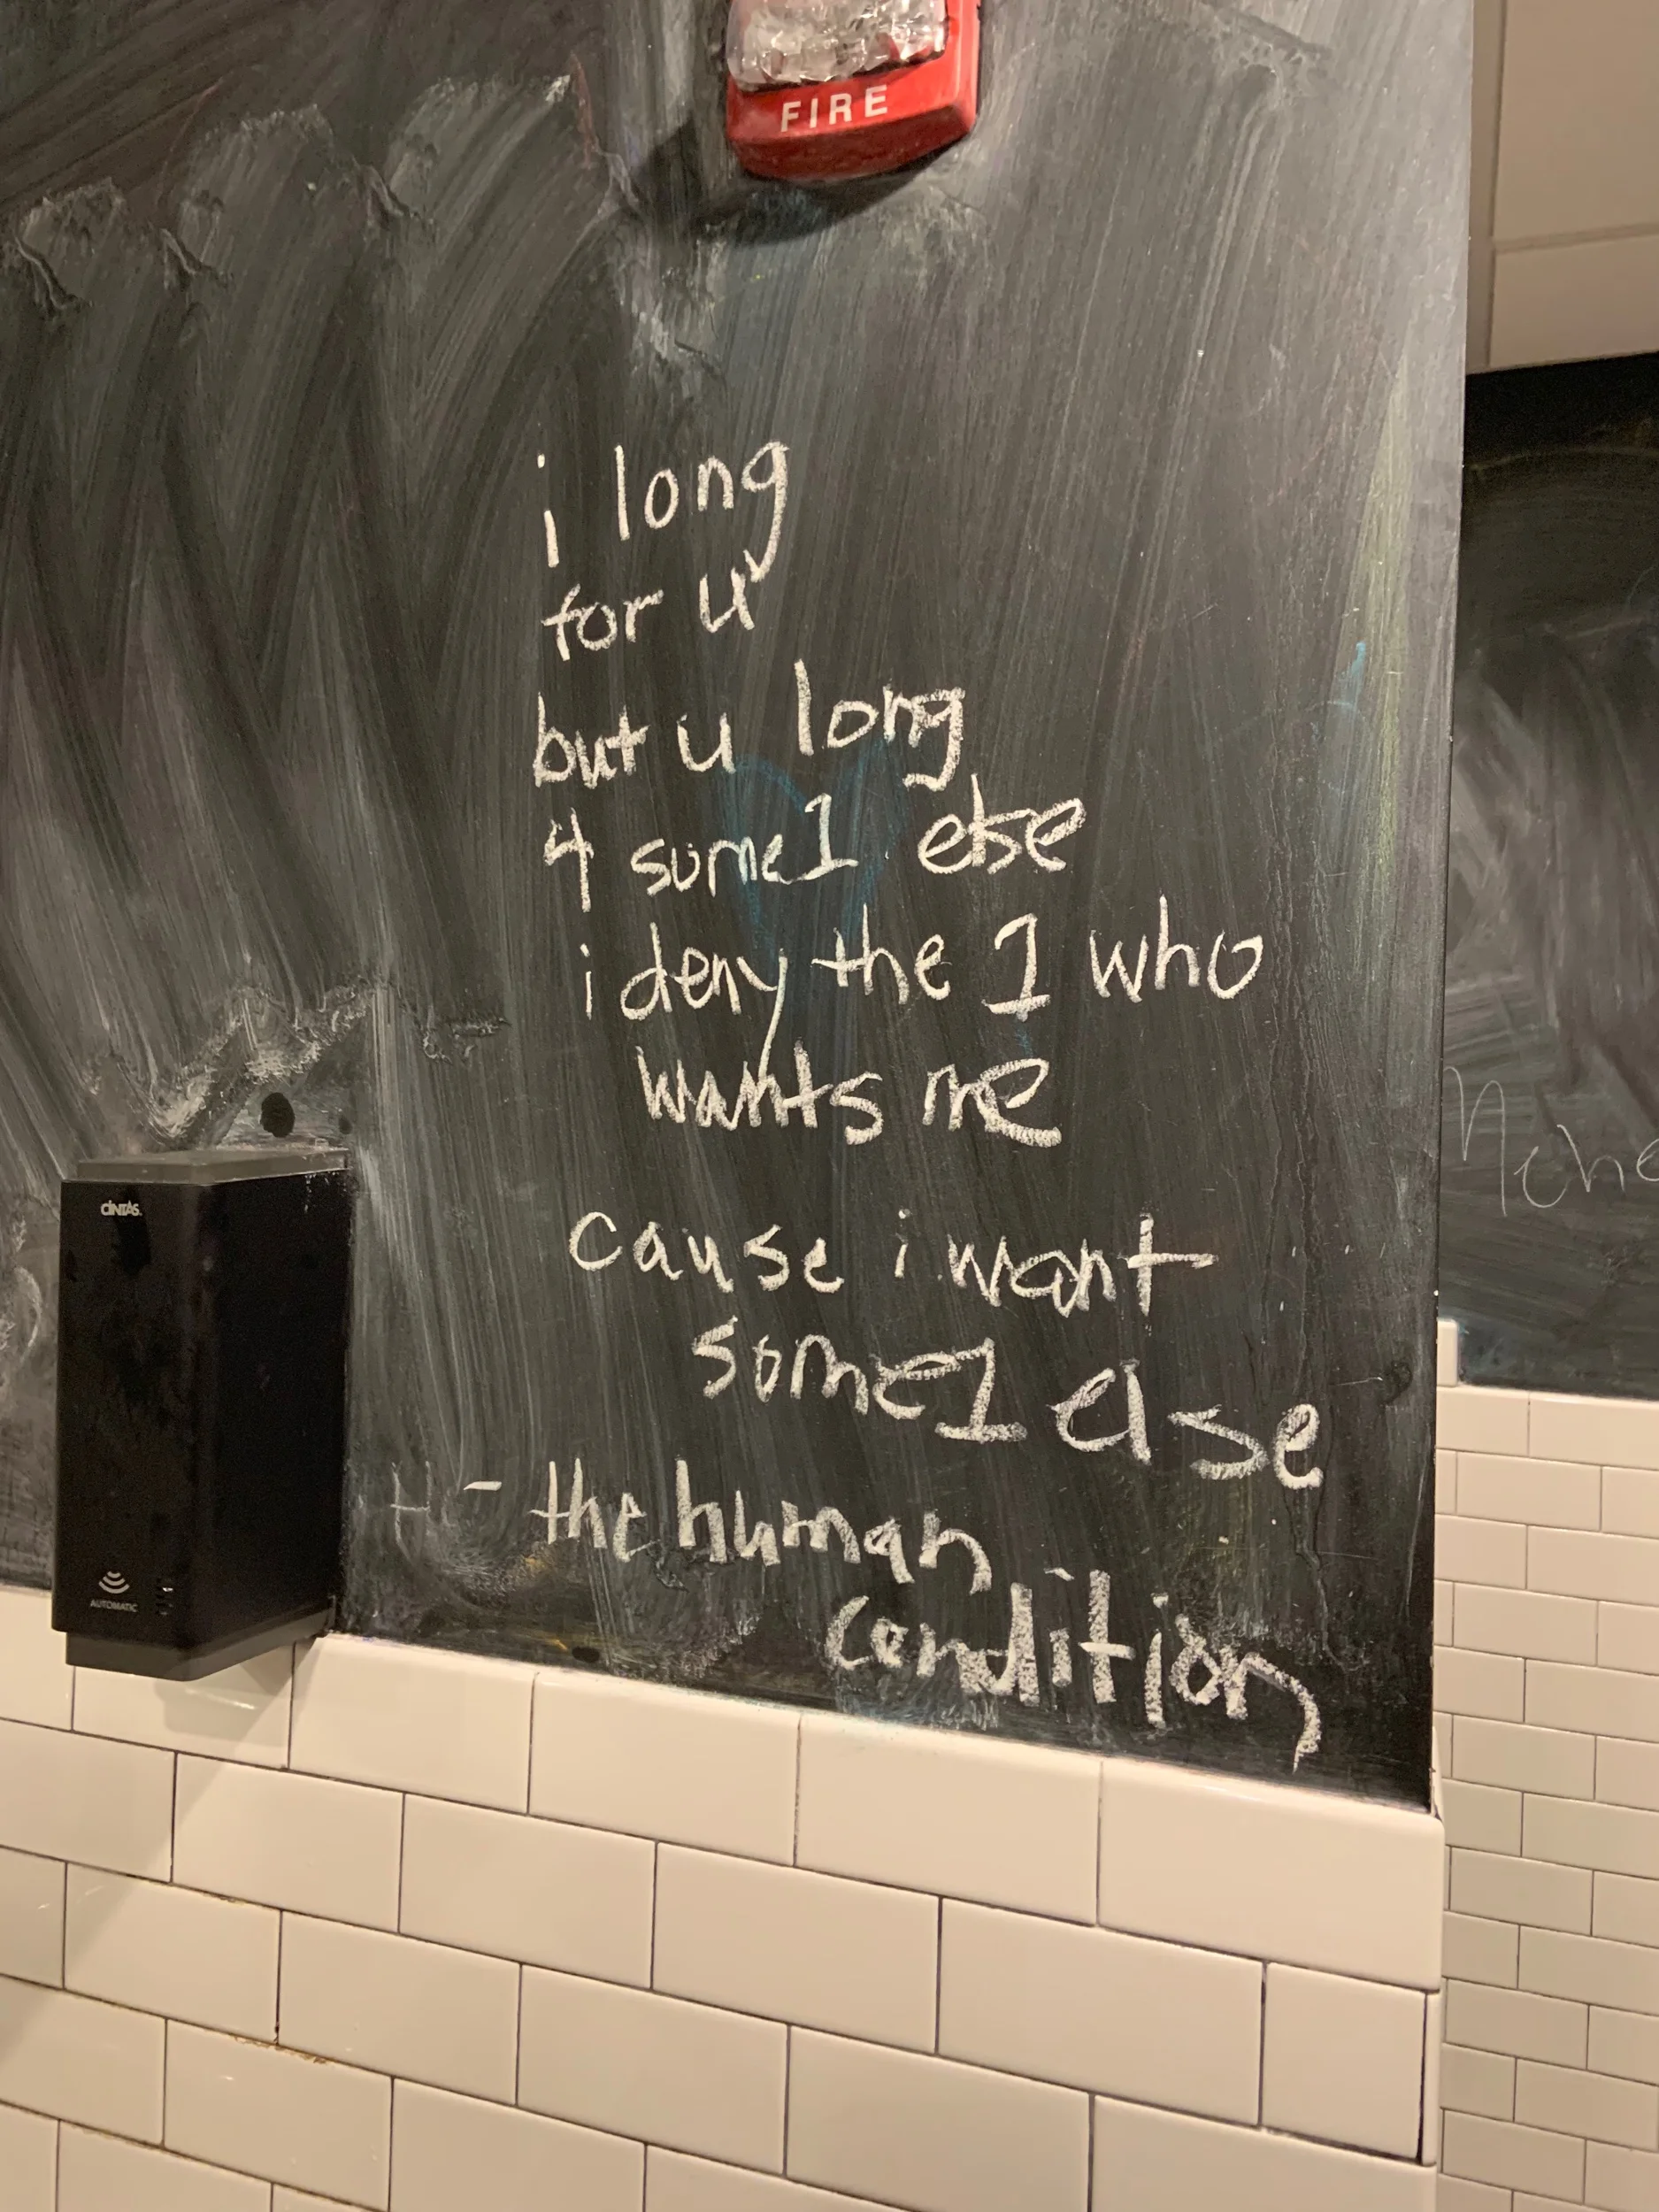 FIRE
i long
for u
but u long
4 some1 else
i deny the 1 who
wants me
cause i want
some1 else
- the human
condition
CINTAS.
AUTOMATIC